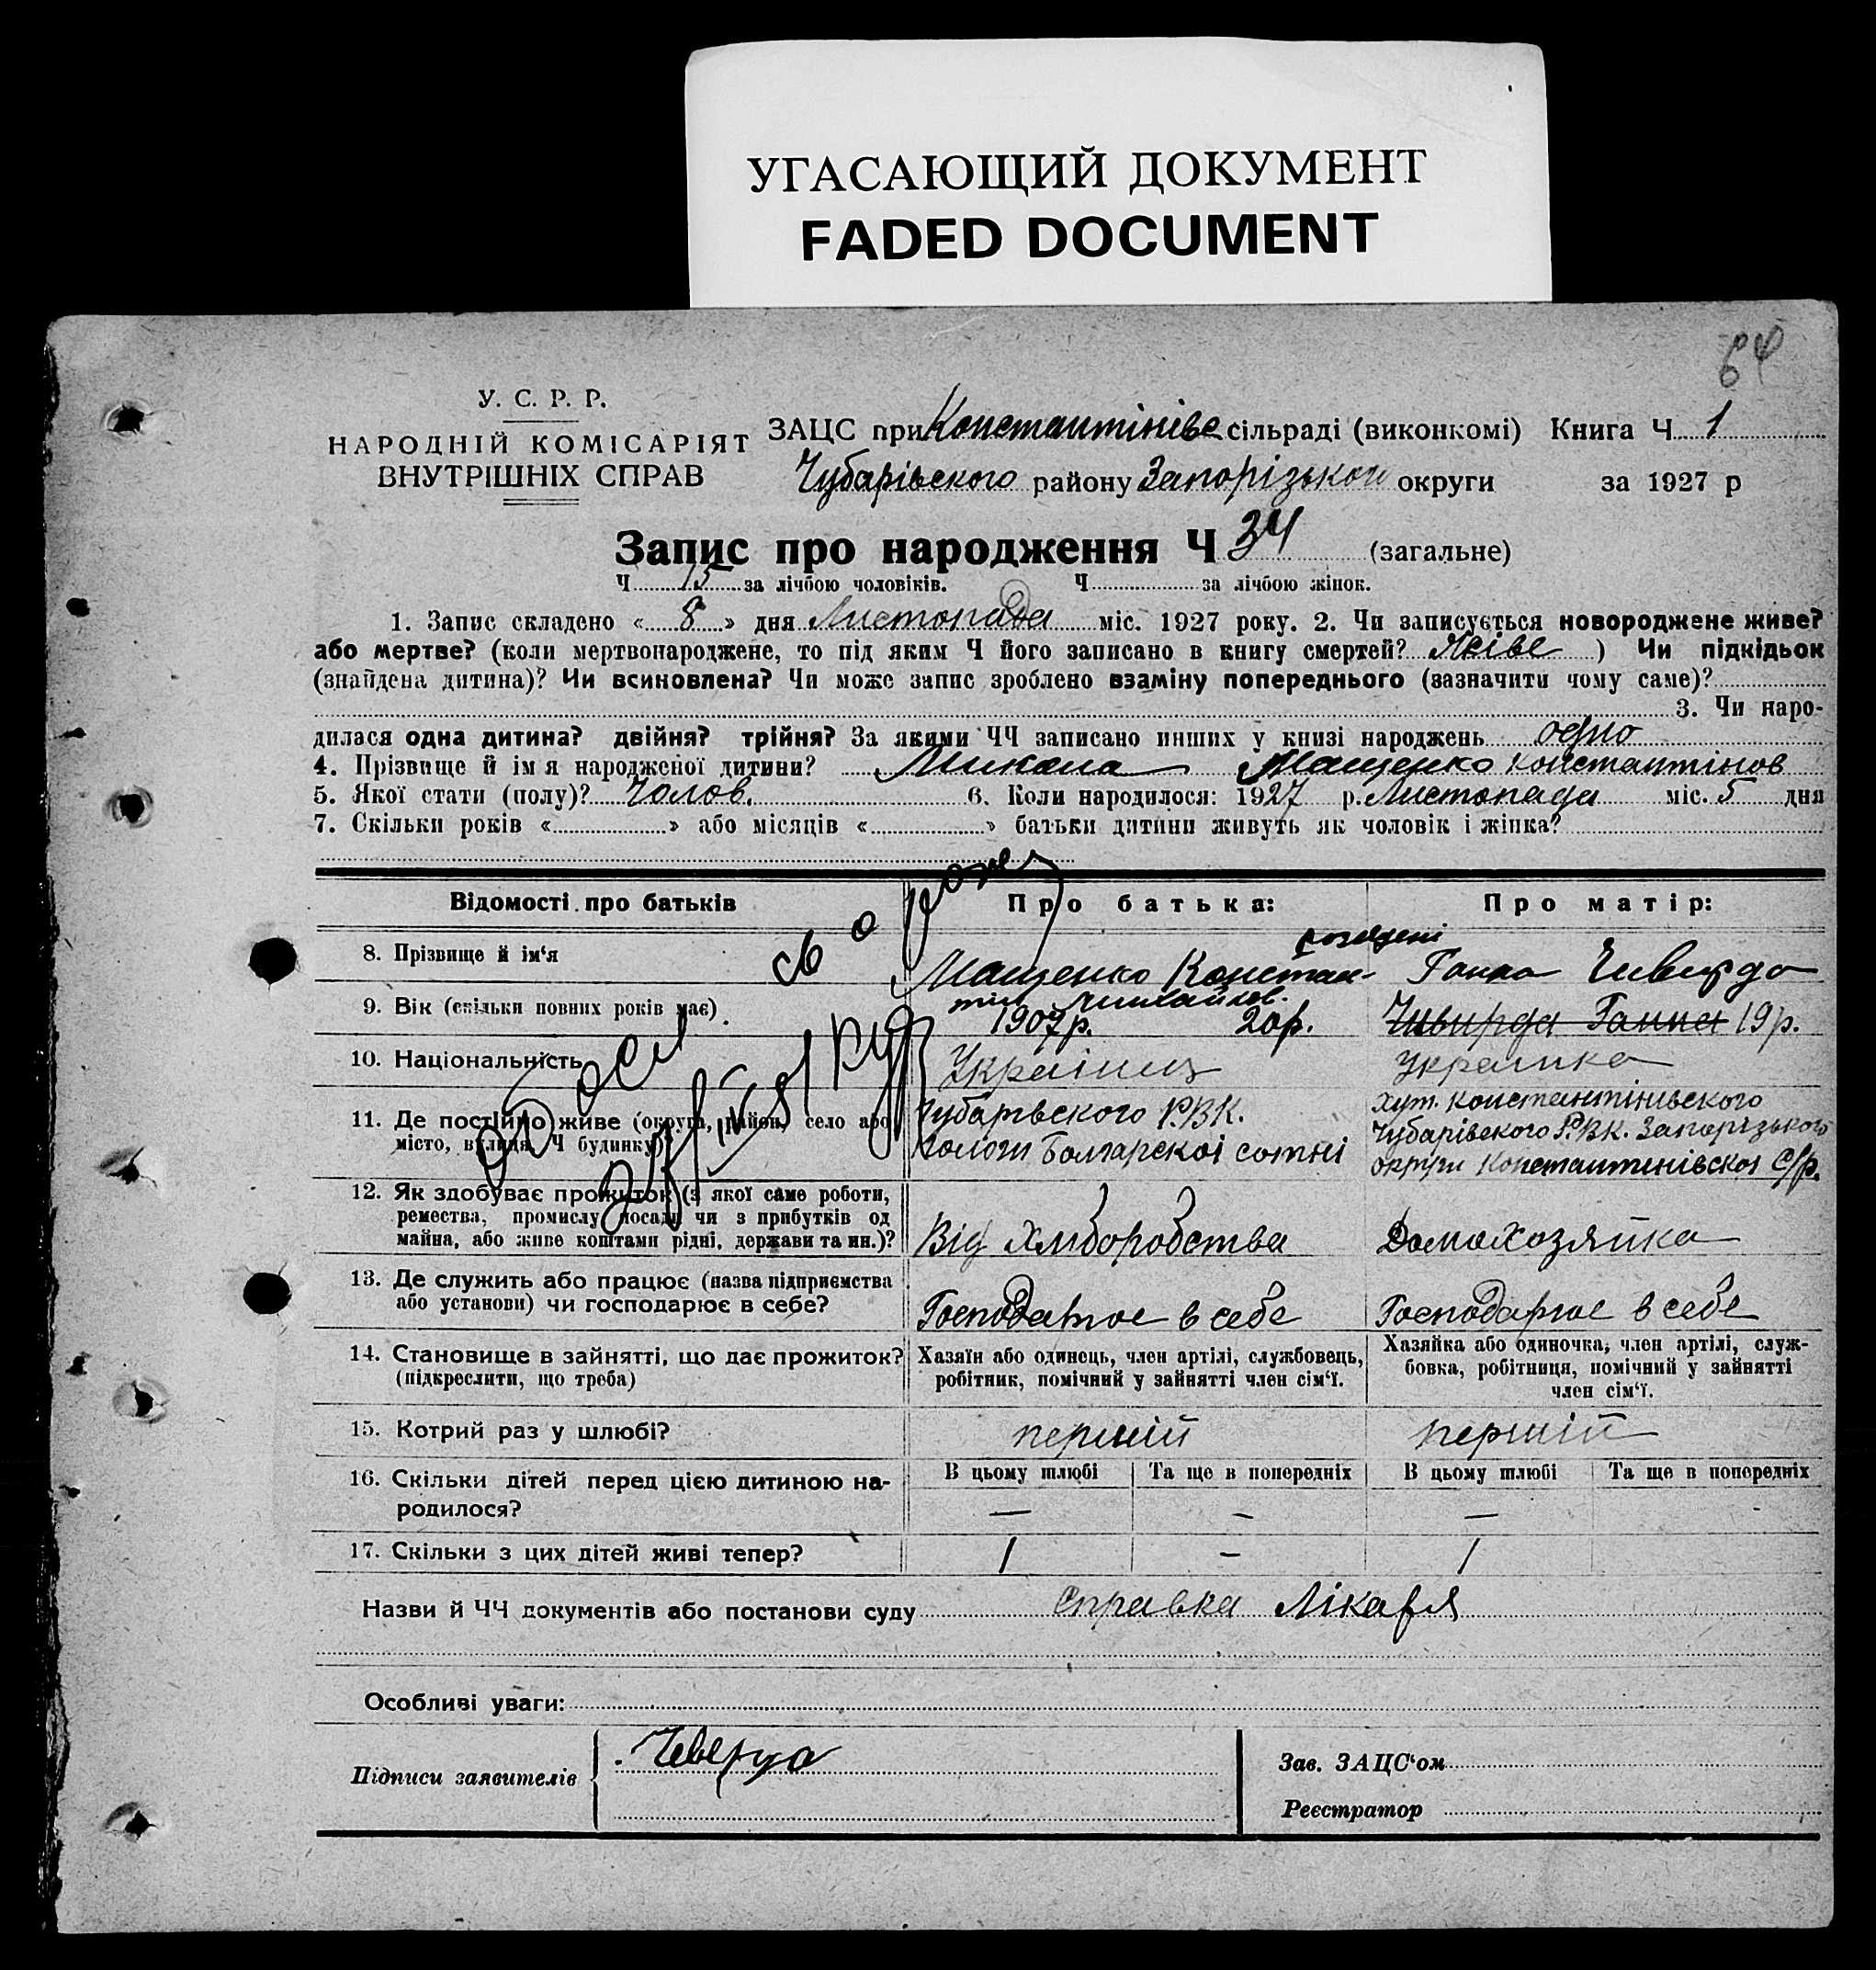 УГАСАЮЩИЙ ДОКУМЕНТ
FADED DOCUMENT
64
У. С. Р. Р.
НАРОДНІЙ КОМІСАРІЯТ
ВНУТРІШНІХ СПРАВ
ЗАЦС при Константінівс сільраді (виконкомі) Книга Ч. 1
Чубарівського району Запорізькои округи за 1927 р
Запис про народження Ч 34 (загальне)
Ч. 15 за лічбою чоловіків. Ч. за лічбою жінок.
1. Запис складено « 8 » дня Листопада міс. 1927 року. 2. Чи записується новороджене живе?
або мертве? (коли мертвонароджене, то під яким Ч його записано в книгу смертей? Жіве ) Чи підкідьок
(знайдена дитина)? Чи всиновлена? Чи може запис зроблено взаміну попереднього (зазначити чому саме)?
3. Чи наро-
дилася одна дитина? двійня? трійня? За якими ЧЧ записано инших у книзі народжень одно
4. Прізвище й імя народженої дитини? Микола Мащенко Константінов
5. Якої стати (полу)? Чолов. 6. Коли народилося: 1927 р. Листопада міс. 5 дня
7. Скільки років « » або місяців « » батьки дитини живуть як чоловік і жінка?
Відомості про батьків Про батька: Про матір:
св о рожд
8. Прізвище й ім'я Мащенко Констан- Ганна Чивирда
тін Михайлов.
9. Вік (скільки повних років має) 1907р. 20р. Чивирда Ганна 19р.
10. Національність Українец Украінка
11. Де постійно живе (округа, район, село або місто, вулиця, Ч будинку)?
Чубарівского Р.В.К.
Пологи Болгарскоі сотні
хут. Константінівского
Чубарівского Р.В.К. Запорізького
округи Константинівскоі С/р.
12. Як здобуває прожиток (з якої саме роботи,
ремества, промислу, посади чи з прибутків од
майна, або живе коштами рідні, держави та ин.)? Від Хліборобства Домохозяйка
13. Де служить або працює (назва підприємства
або установи) чи господарює в себе? Господарює в себе Господарює в себе
14. Становище в зайнятті, що дає прожиток?
(підкреслити, що треба)
Хазяїн або одинець, член артілі, службовець,
робітник, помічний у зайнятті член сім'ї.
Хазяйка або одиночка, член артілі, служ-
бовка, робітниця, помічний у зайнятті
член сім'ї.
15. Котрий раз у шлюбі? перший первий
16. Скільки дітей перед цією дитиною на-
родилося?
В цьому шлюбі Та ще в попередніх В цьому шлюбі Та ще в попередніх
— – — -
17. Скільки з цих дітей живі тепер? 1 – 1
Назви й ЧЧ документів або постанови суду Справка Лікаря
Особливі уваги:
Підписи заявителів Чеверда
Зав. ЗАЦС'ом
Реєстратор